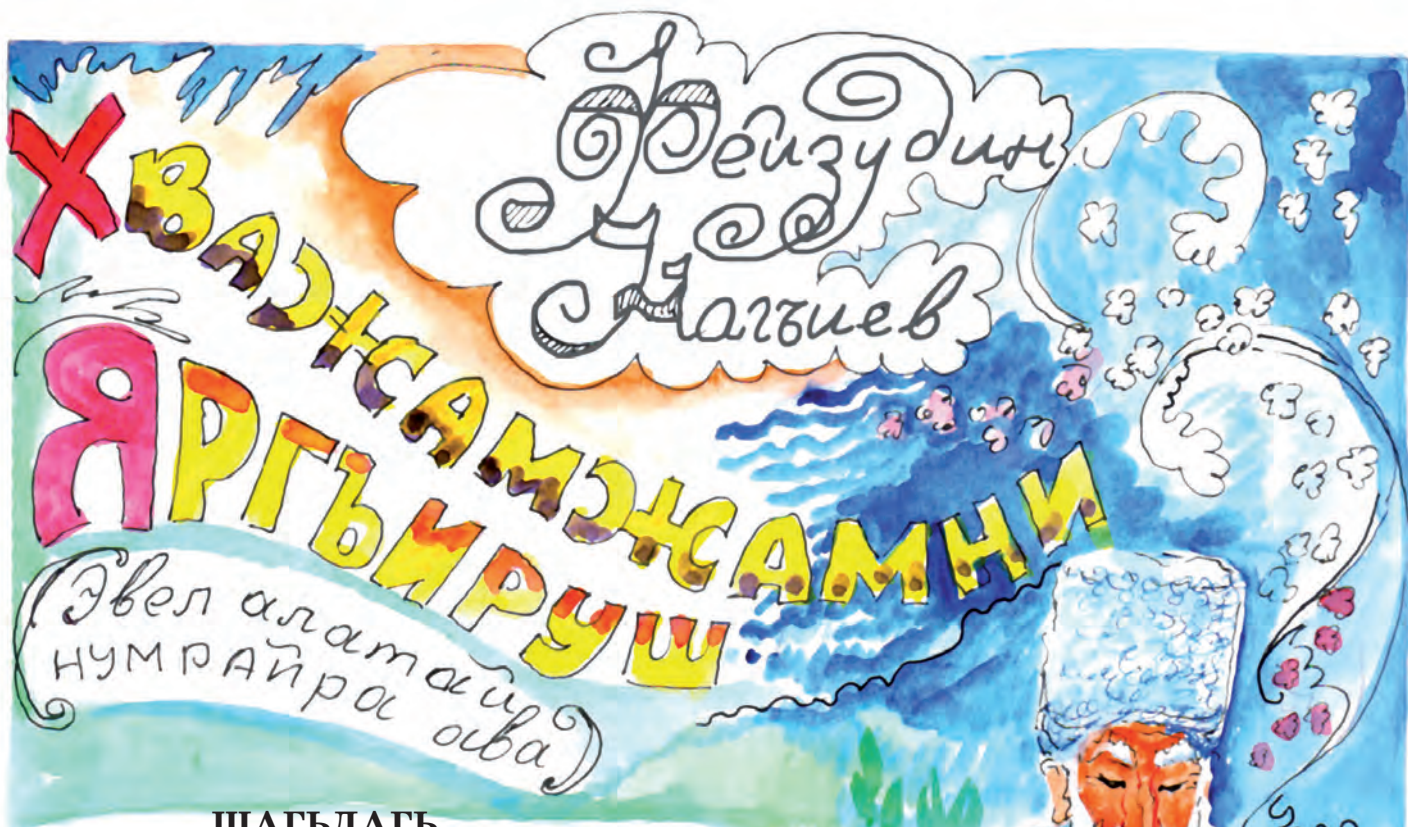 Фейзудин
Нагъиев
ХВАЖАМЖАМНИ
ЯРГЪИРУШ
(Эвел алатай
нумрайра ава)
ШАГЬДАГЪ